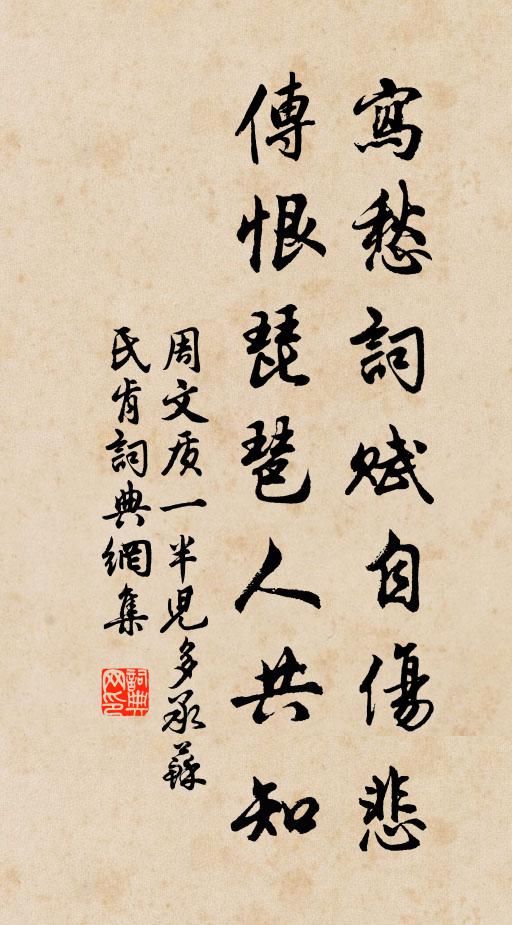 寫愁詞賦自傷悲
傳恨琵琶人共知
周文质一半児多承蘇
氏肯詞典網集
詞典网印